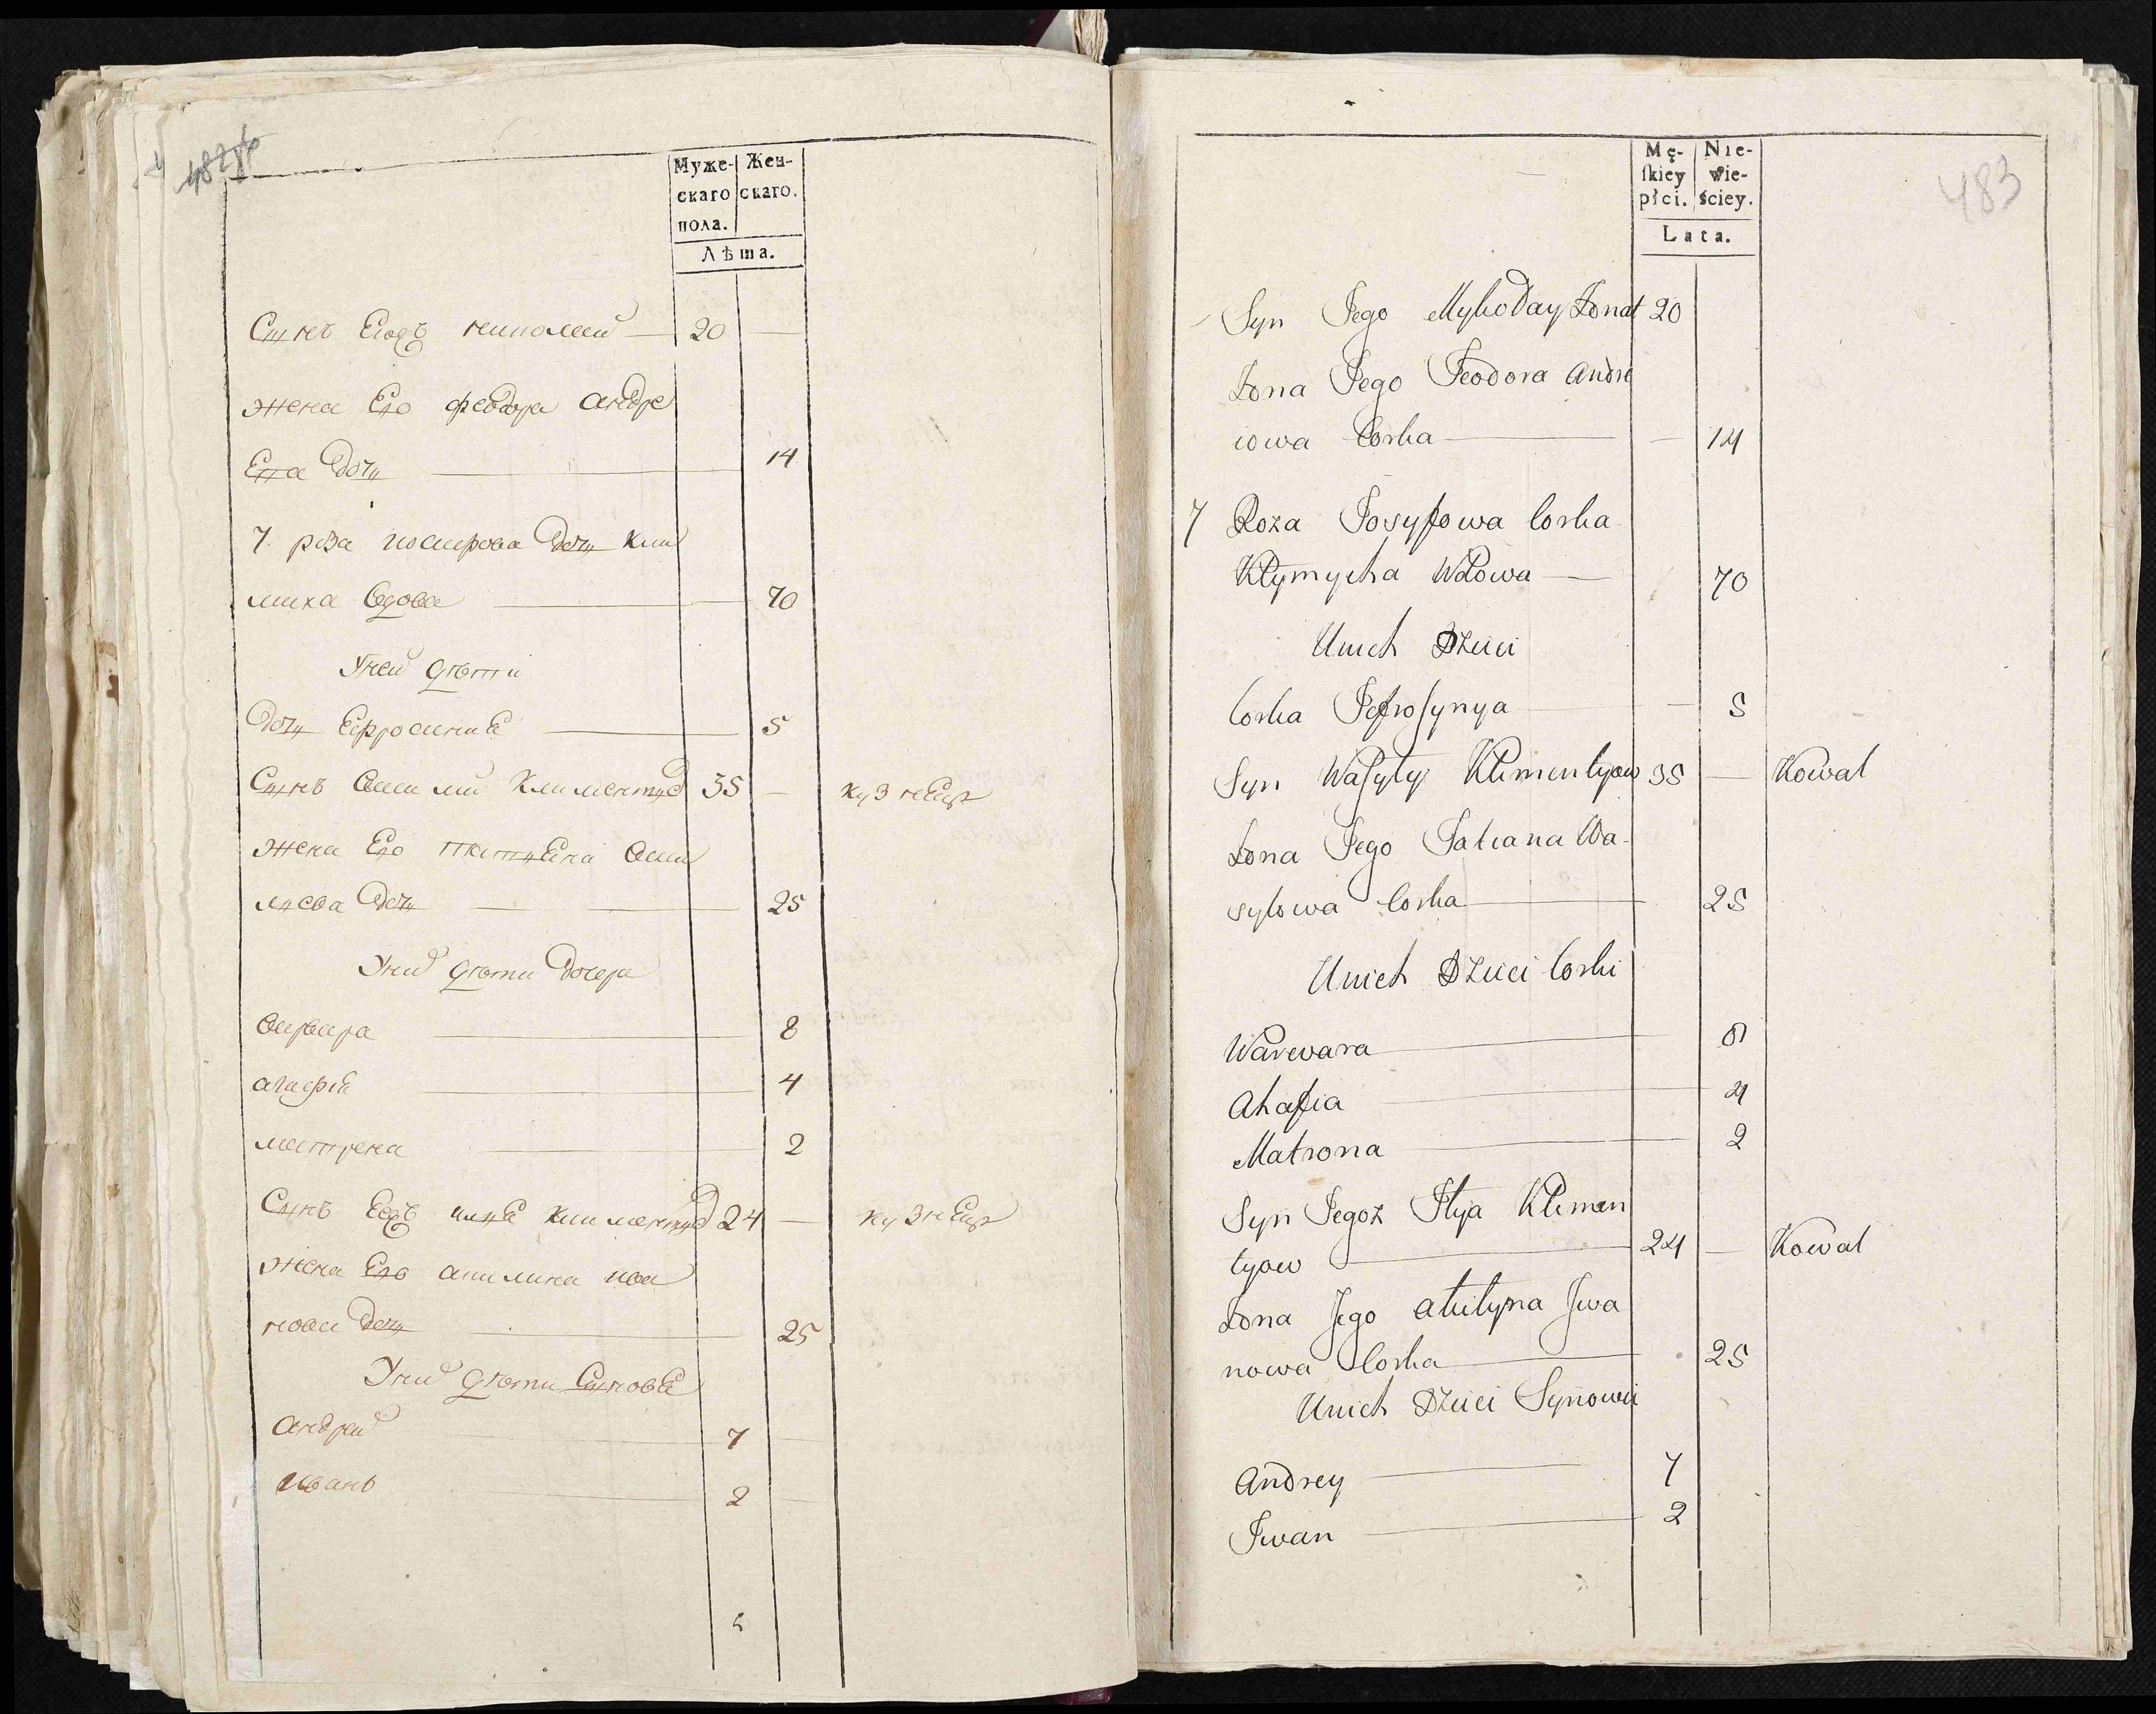 482об
Муже-
скаго
пола.
Жен-
скаго.
Лѣта.
Сынъ Егожъ николай 20
жена Его феодора андре
Ева дочь 14
7. роза иосифова дочь кли
миха вдова 70
Унеи дѣти
дочь Ефросиния 5
Сынъ василий Климентиев 35 кузнецъ
жена Его татияна васи
лиева дочь 25
Уних дѣти дочери
варвара 8
агафия 4
матрена 2
Сынъ Еяжъ илия климентиев 24 кузнецъ
жена Его акилина ива
нова дочь 25
Уних дѣти Сыновья
андрей 7
иванъ 2
483
Mę-
ſkiey
płci.
Nie-
wie-
ściey.
Lata.
Syn Jego Mykołay Żonat 20
Żona Jego Feodora Andre
iowa Corka 14
7 Roza Josyfowa Corka
Kłymycha Wdowa 70
Unich Dzieci
Corka Jefrosynya 5
Syn Wasyly Klimentyow 35 Kowal
Żona Jego Tatiana Wa-
sylowa Corka 25
Unich Dzieci Corki
Warwara 8
Ahafia 4
Matrona 2
Syn Jegoz Ilya Klimen
tyow 24 Kowal
Żona Jego Akilyna Jwa
nowa Corka 25
Unich Dzieci Synowii
Andrey 7
Jwan 2